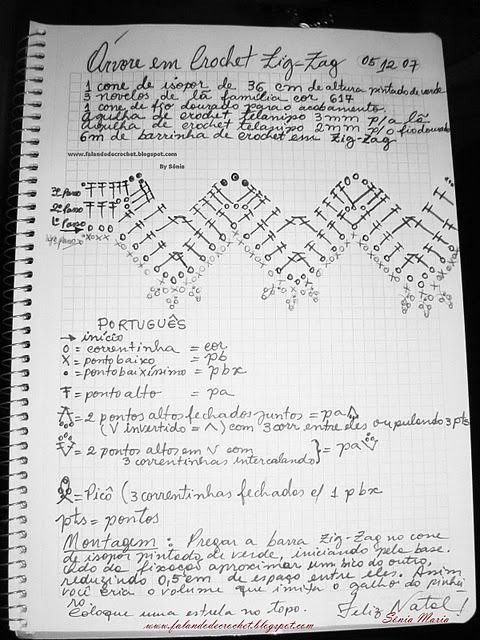 Árvore em Crochet Zig-Zag 05 12 07
1 cone de isopor de 36 cm de altura pintado de verde
3 novelos de lã família cor 617
1 cone de fio dourado para o acabamento.
Agulha de crochet telanipo 3mm p/a lã
agulha de crochet telanipo 2mm p/o fio dourado
6m de barrinha de crochet em Zig-Zag
www.falandodecrochet.blogspot.com
By Sônia
3ª
2ª
1ª
PORTUGUÊS
→ início
o = correntinha = cor
x = ponto baixo = pb
• = ponto baixíssimo = pbx
= ponto alto = pa
= 2 pontos altos fechados juntos = pa
(V invertido = ʌ) com 3 corr entre eles ou pulando 3 pts
= 2 pontos altos em V com
3 correntinhas intercalando } = pa V
= Picô (3 correntinhas fechados c/ 1 pbx
pts = pontos
Montagem: Pregar a barra Zig-Zag no cone
de isopor pintado de verde, iniciando pela base.
Cada da fixação aproximar um bico do outro,
reduzindo 0,5 cm de espaço entre eles. Assim
você cria o volume que imita o galho do pinhei
ro.
Coloque uma estrela no topo. Feliz Natal!
www.falandodecrochet.blogspot.com Sônia Maria